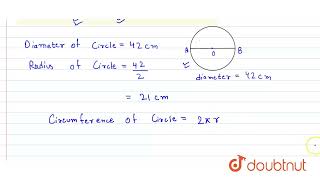 Diamater of Circle = 42 cm
Radius of Circle = 42/2
= 21 cm
A O B
diameter = 42 cm
Circumference of Circle = 2πr
doubtnut